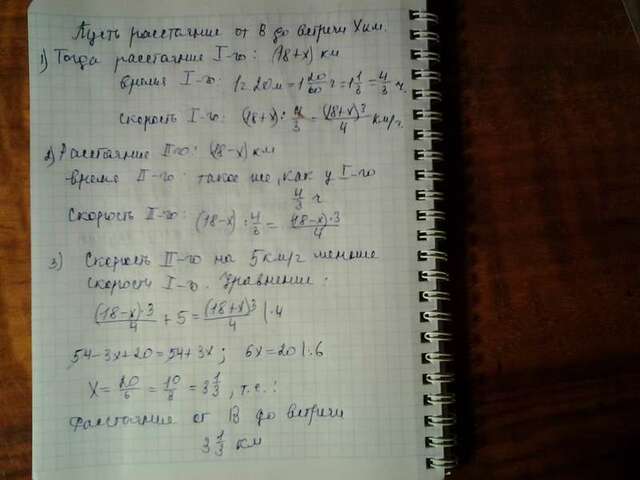 Пусть расстояние от B до встречи X км.
1) Тогда расстояние I-го: (18+x) км
время I-го: 1ч 20м = 1 20/60 ч = 1 1/3 = 4/3 ч.
скорость I-го: (18+x) : 4/3 = (18+x)3/4 км/ч.
2) Расстояние II-го: (18-x) км
время II-го: такое же, как у I-го
4/3 ч
Скорость II-го: (18-x) : 4/3 = (18-x)·3/4
3) Скорость II-го на 5 км/ч меньше
скорости I-го. Уравнение:
(18-x)·3/4 + 5 = (18+x)3/4 |·4
54-3x+20 = 54+3x; 6x = 20 |:6
X = 20/6 = 10/3 = 3 1/3, т.е.:
расстояние от B до встречи
3 1/3 км